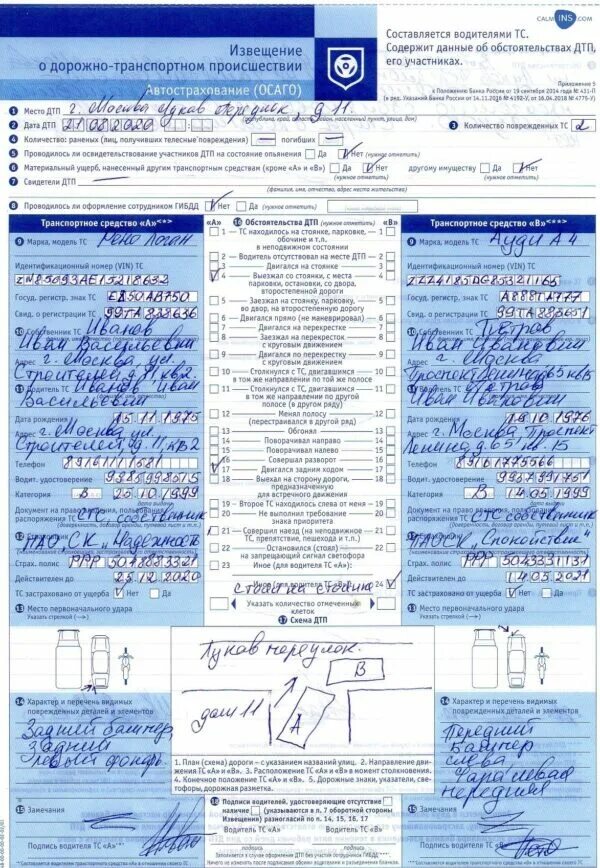 CALM INS .COM
Извещение
о дорожно-транспортном происшествии
Автострахование (ОСАГО)
Составляется водителями ТС.
Содержит данные об обстоятельствах ДТП,
его участниках.
Приложение 5
к Положению Банка России от 19 сентября 2014 года № 431-П
(в ред. Указаний Банка России от 14.11.2016 № 4192-У, от 16.04.2018 № 4775-У)
1 Место ДТП г. Москва Луков переулок, д 11.
2 Дата ДТП 21 08 2020
3 Количество поврежденных ТС 2
4 Количество: раненых (лиц, получивших телесные повреждения) — погибших —
5 Проводилось ли освидетельствование участников ДТП на состояние опьянения Да Нет (нужное отметить)
6 Материальный ущерб, нанесенный другим транспортным средствам (кроме «А» и «В») Да Нет другому имуществу Да Нет
(нужное отметить) (нужное отметить)
7 Свидетели ДТП —
(фамилия, имя, отчество, адрес места жительства)
8 Проводилось ли оформление сотрудником ГИБДД Нет Да
Транспортное средство «А»
9 Марка, модель ТС Рено Логан
Идентификационный номер (VIN) ТС
Госуд. регистр. знак ТС Е850АВ750
Свид. о регистрации ТС
10 Собственник ТС Иванов
Иван Васильевич
Адрес г. Москва, ул.
Строителей д. 11 кв 2
11 Водитель ТС Иванов Иван
Васильевич
Дата рождения 15 11 1975
Адрес г. Москва ул.
Строителей, д. 11, кв 2
Телефон 89161111581
Водит. удостоверение 9985998515
Категория В 25 10 1999
Документ на право владения, пользования, распоряжения ТС СТС, собственник
12 Страховщик ПАО „СК „Надежность"
Страх. полис РРР 5048883321
Действителен до 25 12 2020
ТС застраховано от ущерба Нет Да
13 Место первоначального удара
Указать стрелкой (—>)
14 Характер и перечень видимых поврежденных деталей и элементов
Задний бампер
задний
левый фонарь
15 Замечания
Подпись водителя ТС «А»
«А» 16 Обстоятельства ДТП (нужное отметить) «В»
1 ТС находилось на стоянке, парковке, обочине и т.п. в неподвижном состоянии 1
2 Водитель отсутствовал на месте ДТП 2
3 Двигался на стоянке 3
4 Выезжал со стоянки, с места парковки, остановки, со двора, второстепенной дороги 4
5 Заезжал на стоянку, парковку, во двор, на второстепенную дорогу 5
6 Двигался прямо (не маневрировал) 6
7 Двигался на перекрестке 7
8 Заезжал на перекресток с круговым движением 8
9 Двигался по перекрестку с круговым движением 9
10 Столкнулся с ТС, двигавшимся в том же направлении по той же полосе 10
11 Столкнулся с ТС, двигавшимся в том же направлении по другой полосе (в другом ряду) 11
12 Менял полосу (перестраивался в другой ряд) 12
13 Обгонял 13
14 Поворачивал направо 14
15 Поворачивал налево 15
16 Совершал разворот 16
17 Двигался задним ходом 17
18 Выехал на сторону дороги, предназначенную для встречного движения 18
19 Второе ТС находилось слева от меня 19
20 Не выполнил требование знака приоритета 20
21 Совершил наезд (на неподвижное ТС, препятствие, пешехода и т.п.) 21
22 Остановился (стоял) на запрещающий сигнал светофора 22
23 Иное (для водителя ТС «А»):
Иное (для водителя ТС «В»): 24
Указать количество отмеченных клеток
17 Схема ДТП
Луков переулок.
В
дом 11
А
1. План (схема) дороги – с указанием названий улиц. 2. Направление движения ТС «А» и «В». 3. Расположение ТС «А» и «В» в момент столкновения. 4. Конечное положение ТС «А» и «В». 5. Дорожные знаки, указатели, светофоры, дорожная разметка.
18 Подписи водителей, удостоверяющие отсутствие
наличие (указываются в п. 7 оборотной стороны Извещения) разногласий по п. 14, 15, 16, 17
Водитель ТС «А» Водитель ТС «В»
подпись подпись
Транспортное средство «В»
9 Марка, модель ТС Ауди А4
Идентификационный номер (VIN) ТС
Госуд. регистр. знак ТС
Свид. о регистрации ТС
10 Собственник ТС Петров
Иван Иванович
Адрес г. Москва
11 Водитель ТС Петров
Иван Иванович
Дата рождения 18 10 1976
Адрес г. Москва Проспект
Телефон 89161775566
Водит. удостоверение 9987991751
Категория В 14 05 1999
Документ на право владения, пользования, распоряжения ТС СТС собственник
12 Страховщик „Спокойствие"
Страх. полис РРР 5023331131
Действителен до 14 05 2021
ТС застраховано от ущерба Нет Да
13 Место первоначального удара
Указать стрелкой (—>)
14 Характер и перечень видимых поврежденных деталей и элементов
Передний
бампер
слева
фара левая
передняя
15 Замечания
Подпись водителя ТС «В»